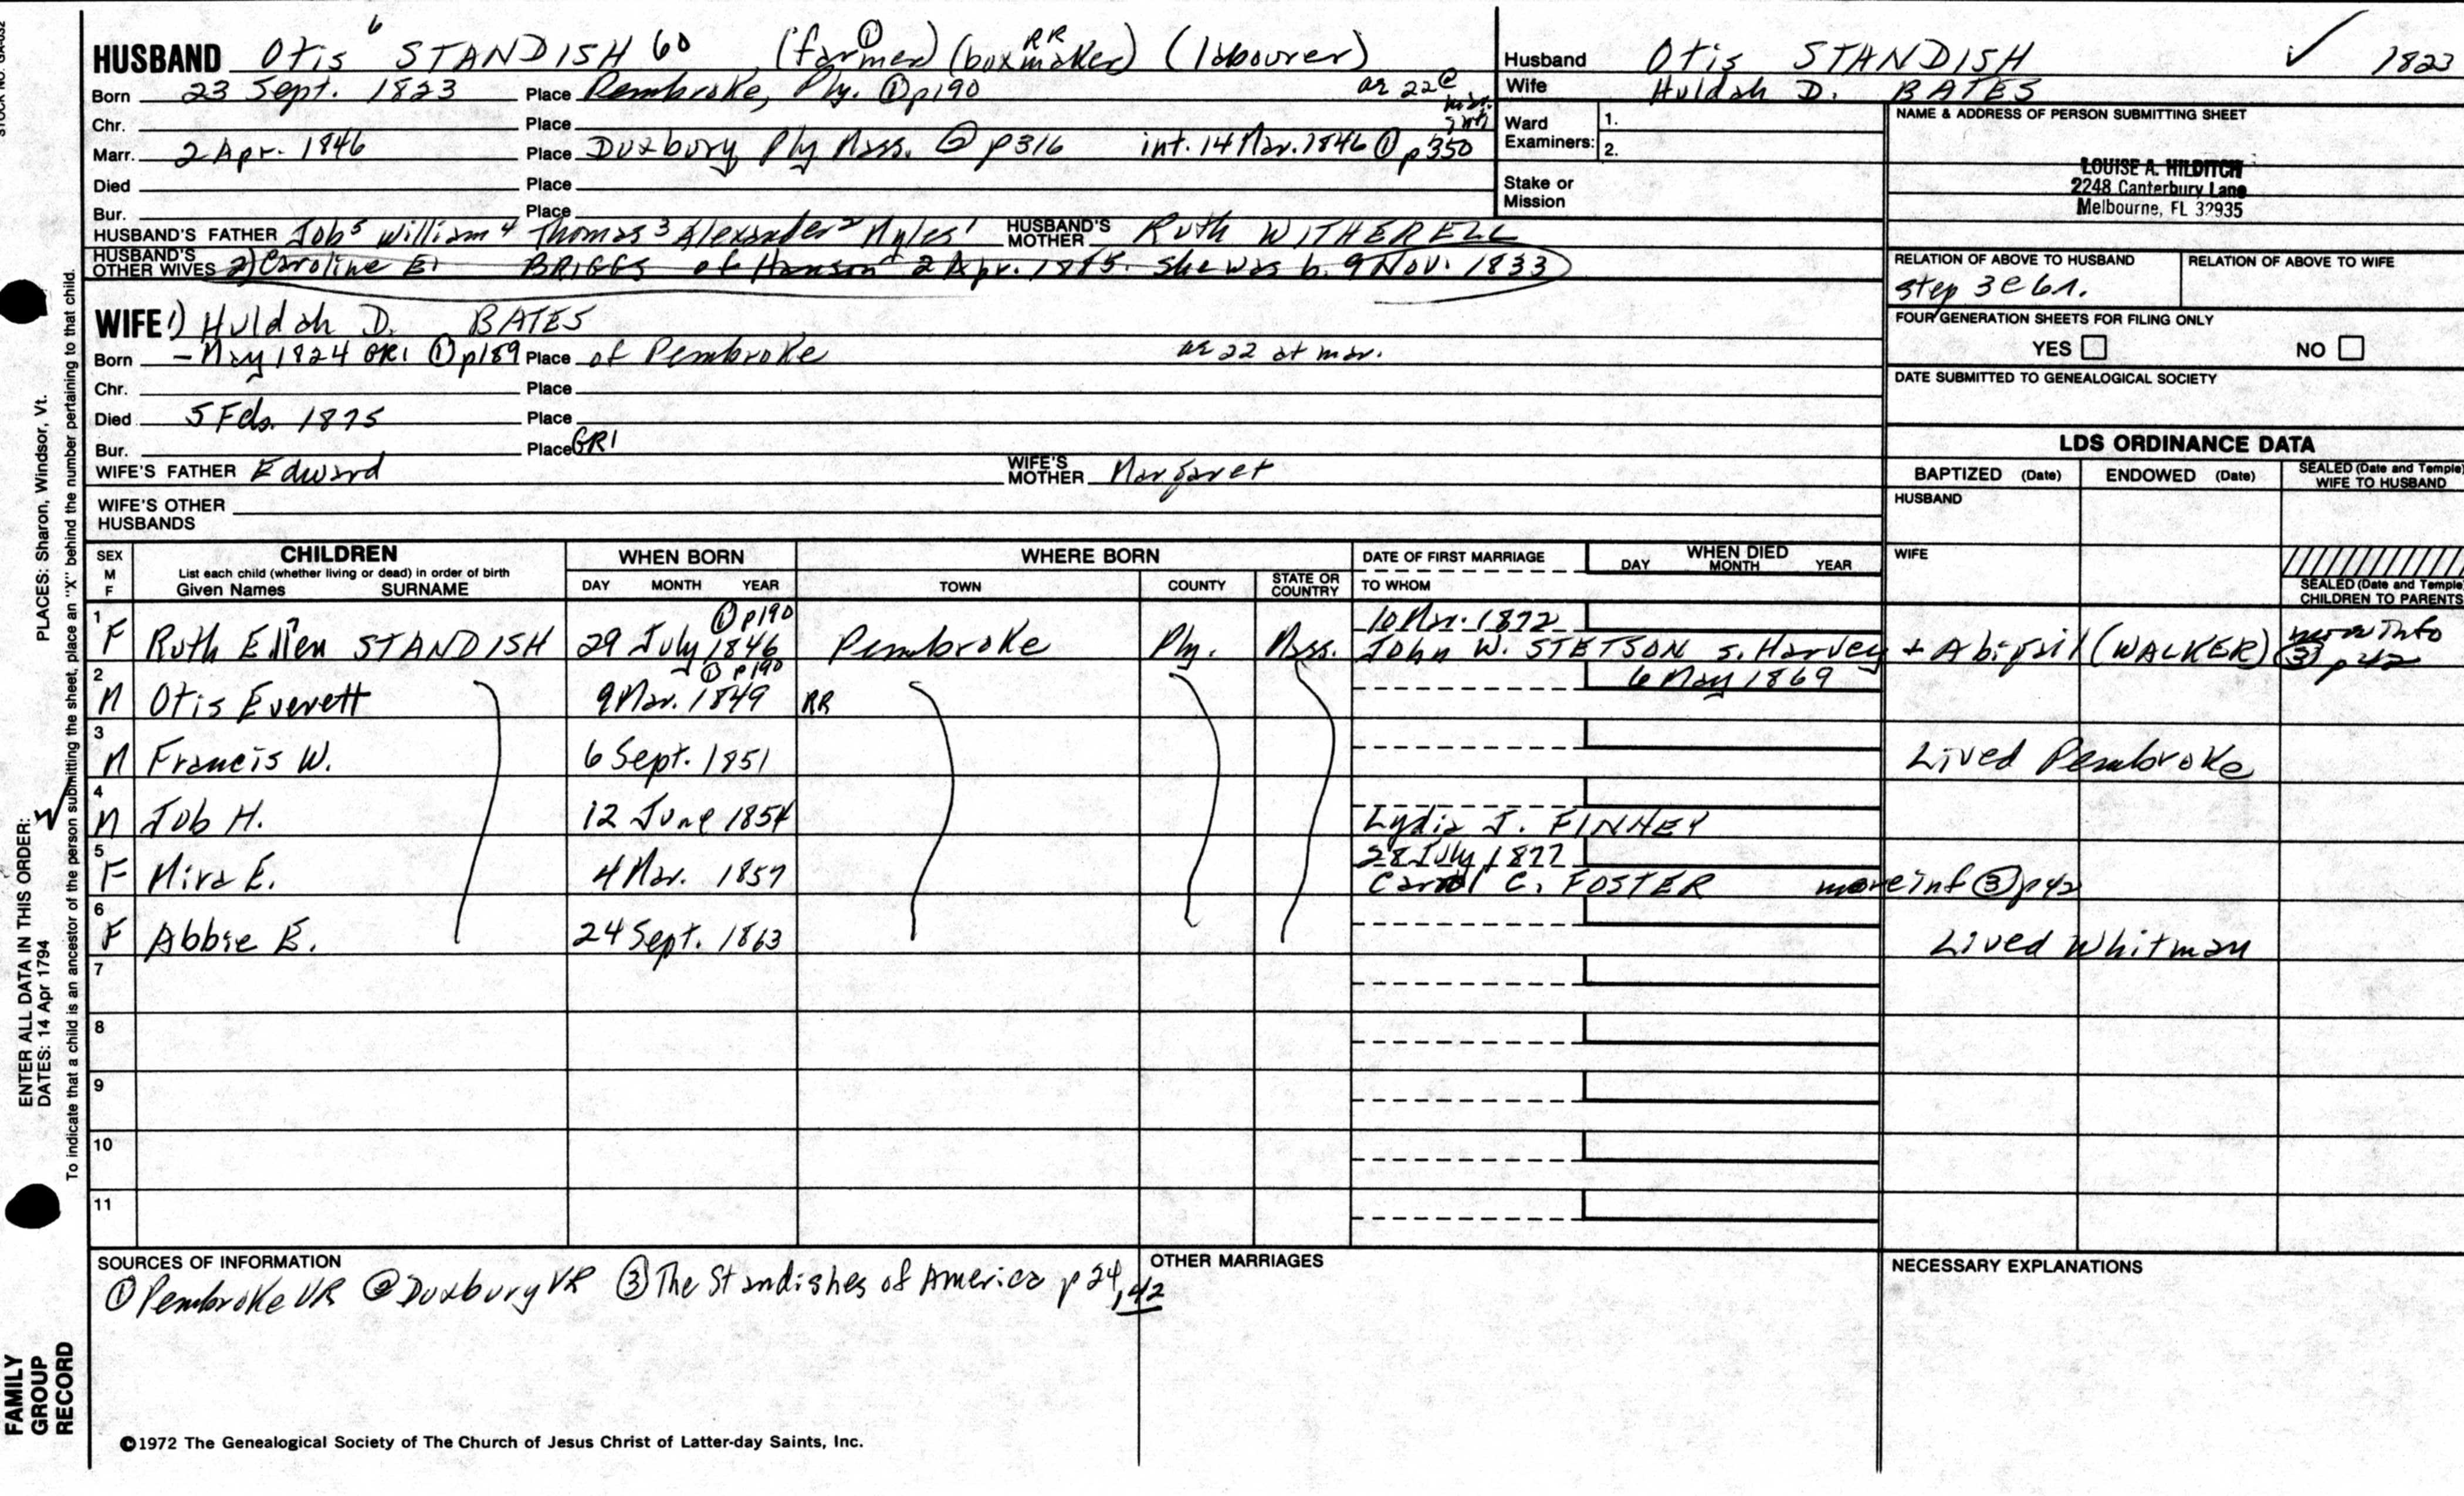 HUSBAND Otis 6 STANDISH 60 (farmer) ① (boxmaker) RR (labourer)
Born 23 Sept. 1823 Place Pembroke, Ply. ① p190 ae 22 @ mar.
Chr. Place
Marr. 2 Apr. 1846 Place Duxbury Ply Mass. ② p316 int. 14 Mar. 1846 ① p350
Died Place
Bur. Place
HUSBAND'S FATHER Job 5 William 4 Thomas 3 Alexander 2 Myles 1 HUSBAND'S MOTHER Ruth WITHERELL
HUSBAND'S OTHER WIVES 2) Caroline E. BRIGGS of Hanson 2 Apr. 1875. She was b. 9 Nov. 1833
WIFE 1) Huldah D. BATES
Born - May 1824 GR1 ① p189 Place of Pembroke ae 22 at mar.
Chr. Place
Died 5 Feb. 1875 Place
Bur. Place GR1
WIFE'S FATHER Edward WIFE'S MOTHER Margaret
WIFE'S OTHER HUSBANDS
Husband Otis STANDISH ✓ 1823
Wife Huldah D. BATES
Ward Examiners: 1. 2.
Stake or Mission
NAME & ADDRESS OF PERSON SUBMITTING SHEET
LOUISE A. HILDITCH
2248 Canterbury Lane
Melbourne, FL 32935
RELATION OF ABOVE TO HUSBAND RELATION OF ABOVE TO WIFE
step 3C 6r.
FOUR GENERATION SHEETS FOR FILING ONLY
YES NO
DATE SUBMITTED TO GENEALOGICAL SOCIETY
LDS ORDINANCE DATA
BAPTIZED (Date) ENDOWED (Date) SEALED (Date and Temple) WIFE TO HUSBAND
HUSBAND
WIFE
SEALED (Date and Temple) CHILDREN TO PARENTS
SEX M F CHILDREN List each child (whether living or dead) in order of birth Given Names SURNAME
WHEN BORN DAY MONTH YEAR
WHERE BORN TOWN COUNTY STATE OR COUNTRY
DATE OF FIRST MARRIAGE TO WHOM
WHEN DIED DAY MONTH YEAR
1 F Ruth Ellen STANDISH 29 July 1846 ① p190 Pembroke Ply. Mass. 10 Mar. 1872 John W. STETSON s. Harvey + Abigail (WALKER) more info ③ p42
2 M Otis Everett 9 Mar. 1849 ① p190 RR 6 May 1869
3 M Francis W. 6 Sept. 1851 Lived Pembroke
4 M Job H. 12 June 1854 Lydia J. FINNEY
5 F Mira E. 4 Mar. 1857 28 July 1877 Carrol C. FOSTER more inf ③ p42
6 F Abbie E. 24 Sept. 1863 Lived Whitman
7
8
9
10
11
SOURCES OF INFORMATION
① Pembroke VR ② Duxbury VR ③ The Standishes of America p 24, 42
OTHER MARRIAGES
NECESSARY EXPLANATIONS
©1972 The Genealogical Society of The Church of Jesus Christ of Latter-day Saints, Inc.
PLACES: Sharon, Windsor, Vt.
ENTER ALL DATA IN THIS ORDER:
DATES: 14 Apr 1794
To indicate that a child is an ancestor of the person submitting the sheet, place an "X" behind the number pertaining to that child.
FAMILY GROUP RECORD